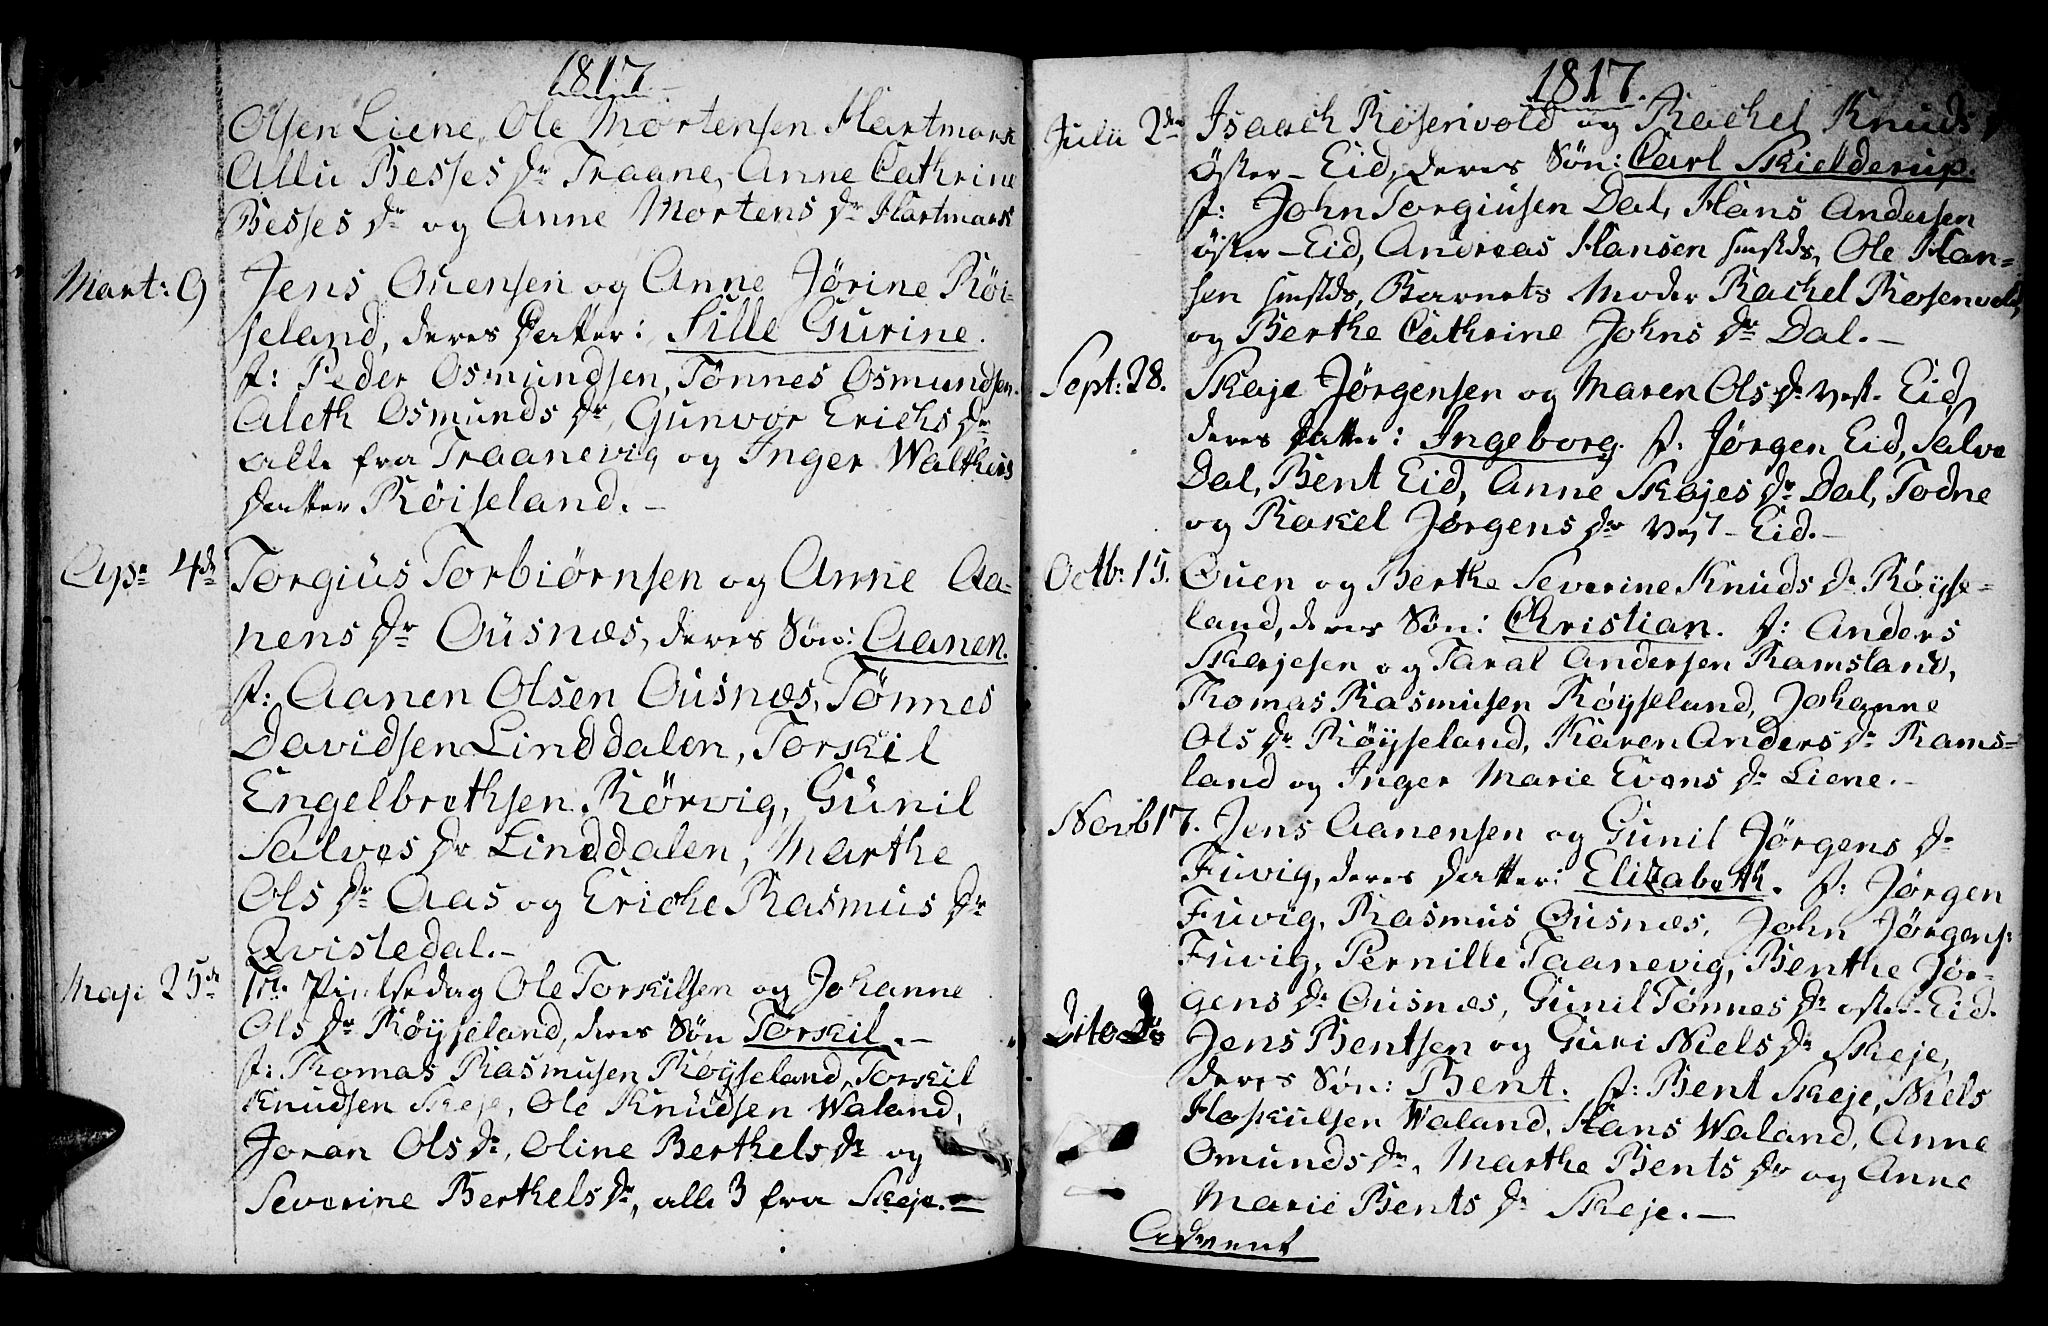 1817.
Olsen Liene, Ole Mortensen Hartmark
Allii Besses Dr Traane, Anne Cathrine
Besses Dr og Anne Mortens Dr Hartmark
Mart: 9 Jens Ouensen og Anne Jørine Röi-
seland, deres Datter: Sille Gurine.
F: Peder Osmundsen, Tønnes Osmundsen.
Aleth Osmunds Dr, Gunvor Erichs Dr
alle fra Traanevig og Inger Walthers
Datter Röiseland. -
Apr: 4de Torgius Torbiørnsen og Anne Aa-
nens Dr Ousnæs, deres Søn: Aanen.
F: Aanen Olsen Ousnæs, Tønnes
Davidsen Linddalen, Torskil
Engelbrethsen Rörvig, Gunil
Salves Dr Linddalen, Marthe
Ols Dr Aas og Eriche Rasmus Dr
Qvisledal. -
Maji 25de 1ste Pintsedag Ole Torskilsen og Johanne
Ols Dr Röysseland, deres Søn Torskil. -
F: Thomas Rasmusen Röyseland, Torskil
Knudsen Skeje, Ole Knudsen Waland,
Joran Ols Dr, Oline Berthels Dr og
Severine Berthels Dr, alle 3 fra Skeje. =
1817.
Julii 2den Isaach Rosenvold og Rachel Knuds Dr
Öster-Eid, deres Søn: Carl Skielderup.
F: John Torgiusen Dal, Hans Andersen
öster-Eid, Andreas Hansen smstds, Ole Han=
sen smstds, Barnets Moder Rachel Rosenvold,
og Berthe Cathrine Johns Dr Dal. -
Sept: 28. Skaje Jørgensen og Maren Ols Dr Vest-Eid,
deres Datter: Ingeborg. F: Jørgen Eid, Salve
Dal, Bent Eid, Anne Skajes Dr Dal, Todne
og Rakel Jørgens Dr Vest-Eid. -
Octb: 15. Ouen og Berthe Severine Knuds Dr Röyse=
land, deres Søn: Christian. F: Anders
Skejesen og Taral Andersen Ramsland,
Thomas Rasmusen Röysseland, Johanne
Ols Dr Röysseland, Karen Anders Dr Rams=
land og Inger Marie Evens Dr Liene. -
Novb 17. Jens Aanensen og Gunil Jørgens Dr
Fuvig, deres Datter: Elizabeth. F: Jørgen
Fuvig, Rasmus Ousnæs, John Jørgens:
Fuvig, Pernille Taanevig, Benthe Jør-
gens Dr Ousnæs, Gunil Tønnes Dr øster-Eid.
Dito Jens Bentsen og Guri Niels Dr Skeje,
deres Søn: Bent. F: Bent Skeje, Niels
Hoskulsen Waland, Hans Waland, Anne
Omunds Dr, Marthe Bents Dr og Anne
Marie Bents Dr Skeje. -
Advent